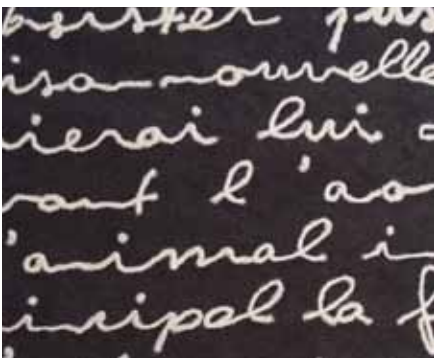 bsister jus
isa nouvelle
ierai lui
vant l'ao
'animal i
incipal la f